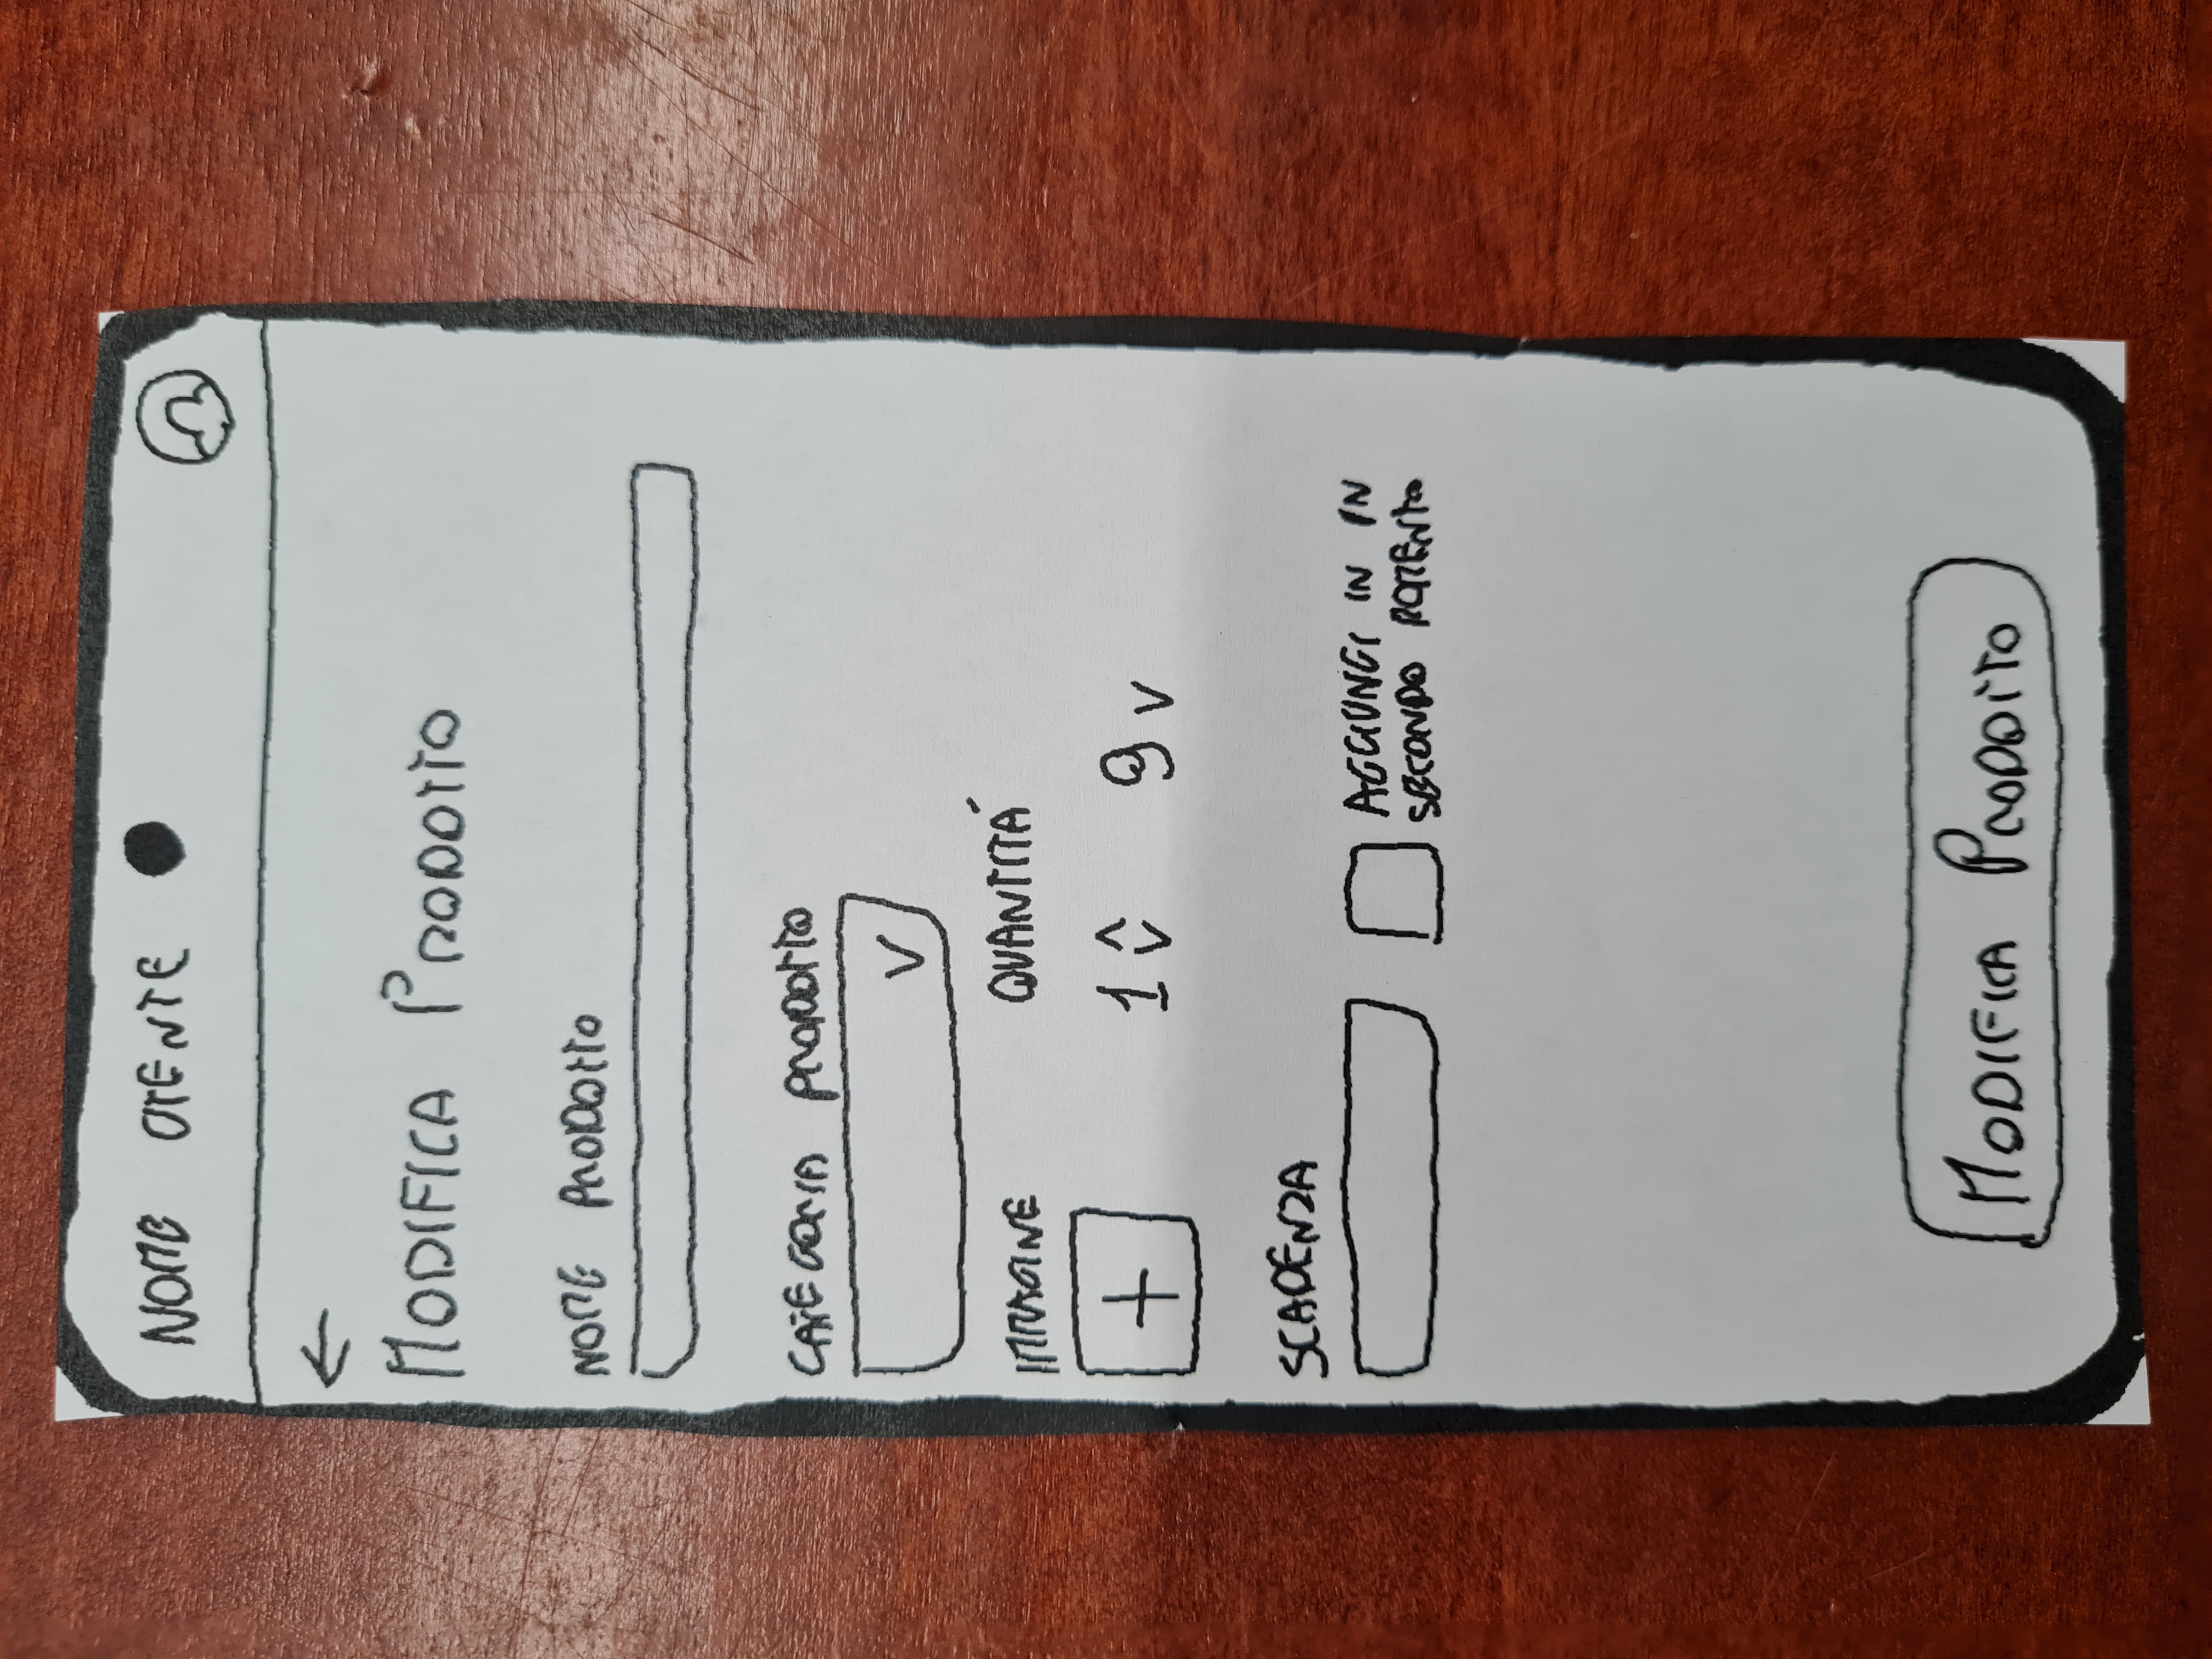 NOME UTENTE
←
MODIFICA PRODOTTO
NOME PRODOTTO
CATEGORIA PRODOTTO
V
IMMAGINE QUANTITÁ
+ 1 ^ v 9 v
SCADENZA
AGGIUNGI IN IN
SECONDO MOMENTO
MODIFICA PRODOTTO